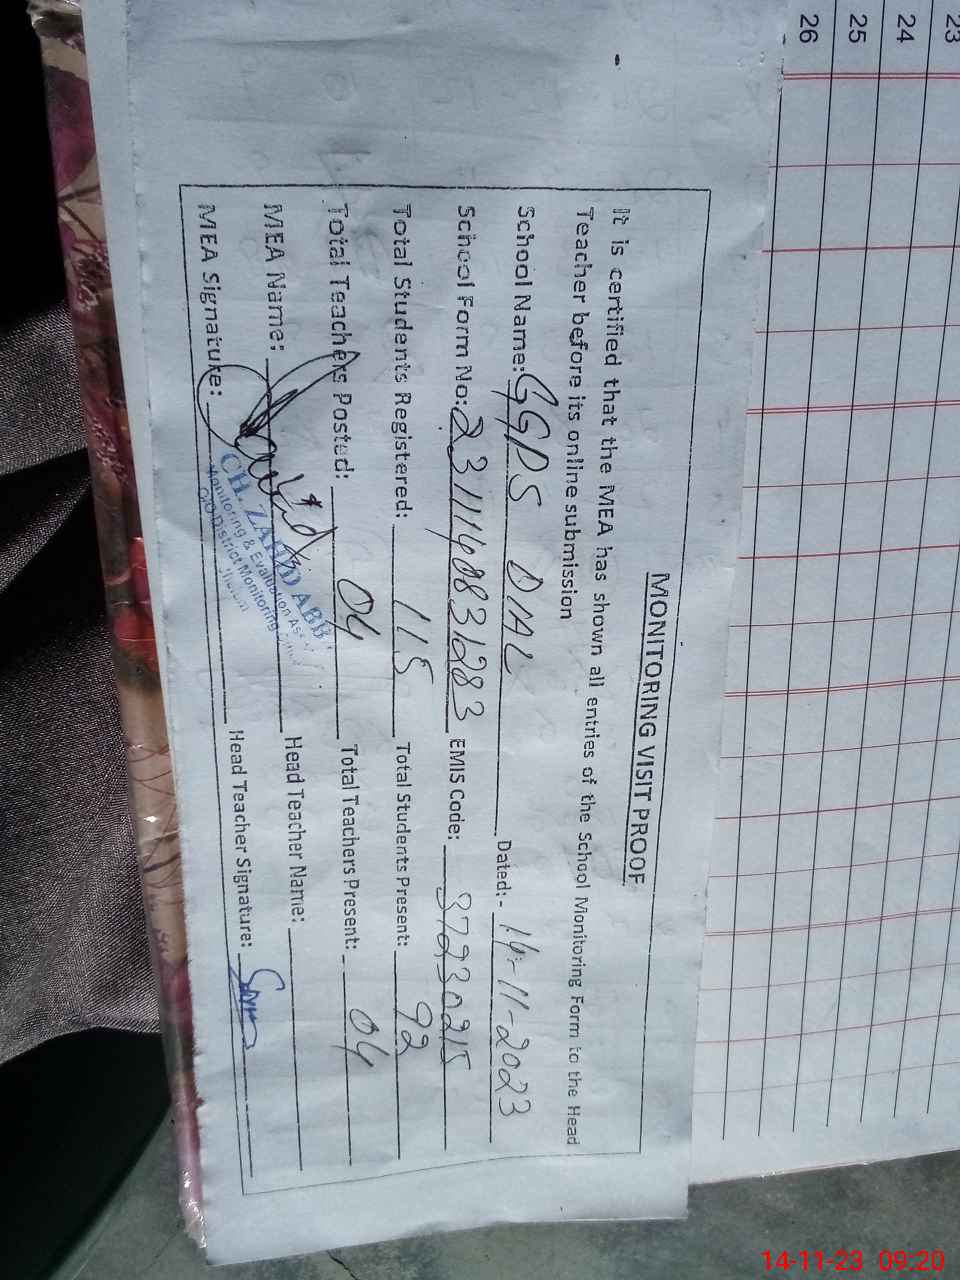 23
24
25
26
MONITORING VISIT PROOF
It is certified that the MEA has shown all entries of the School Monitoring Form to the Head
Teacher before its online submission
School Name: GGPS DIAL Dated:- 14-11-2023
School Form No: 2311140831283 EMIS Code: 37230215
Total Students Registered: 115 Total Students Present: 92
Total Teachers Posted: 04 Total Teachers Present: 04
MEA Name: Head Teacher Name:
MEA Signature: Head Teacher Signature:
CH. ZAHID ABB
Monitoring & Evaluation Ass
O/O District Monitoring
Jhelum
14-11-23 09:20